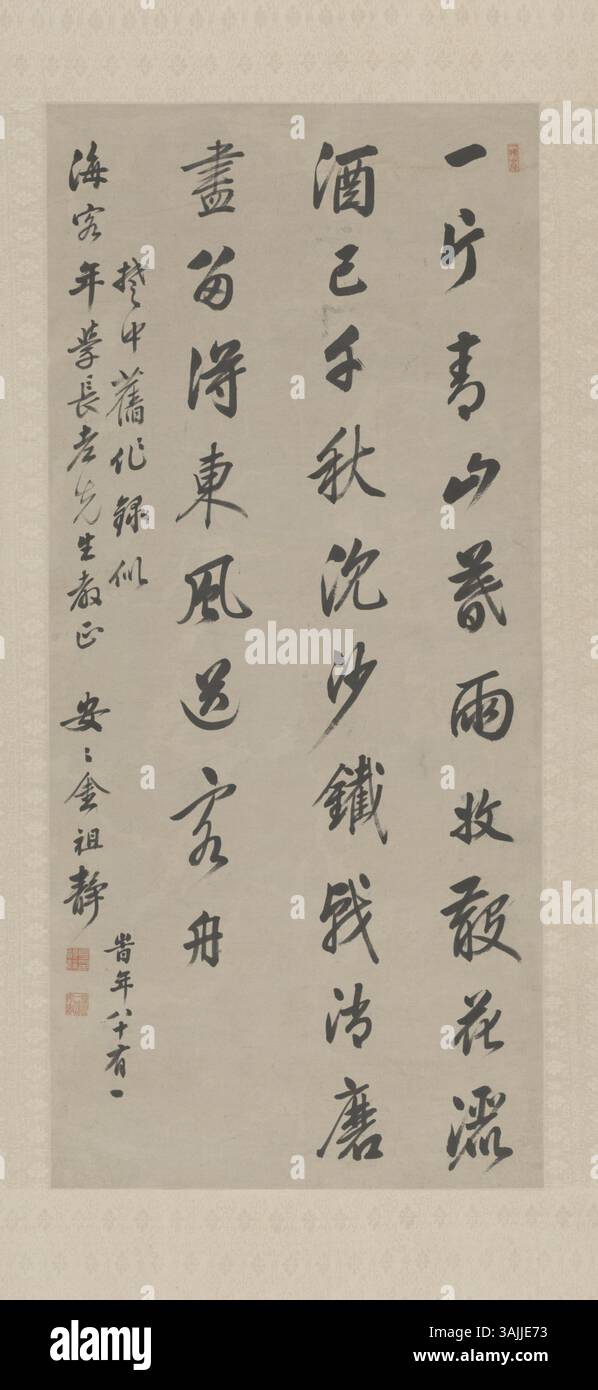 一片青山暮雨收散花灑
酒已千秋沉沙鐵戟消磨
盡留得東風送客舟
楚中舊作錄似
海客年學長老先生教正 安〻金祖靜
旹年八十有一
alamy
alamy
Image ID: 3AJJE73
www.alamy.com